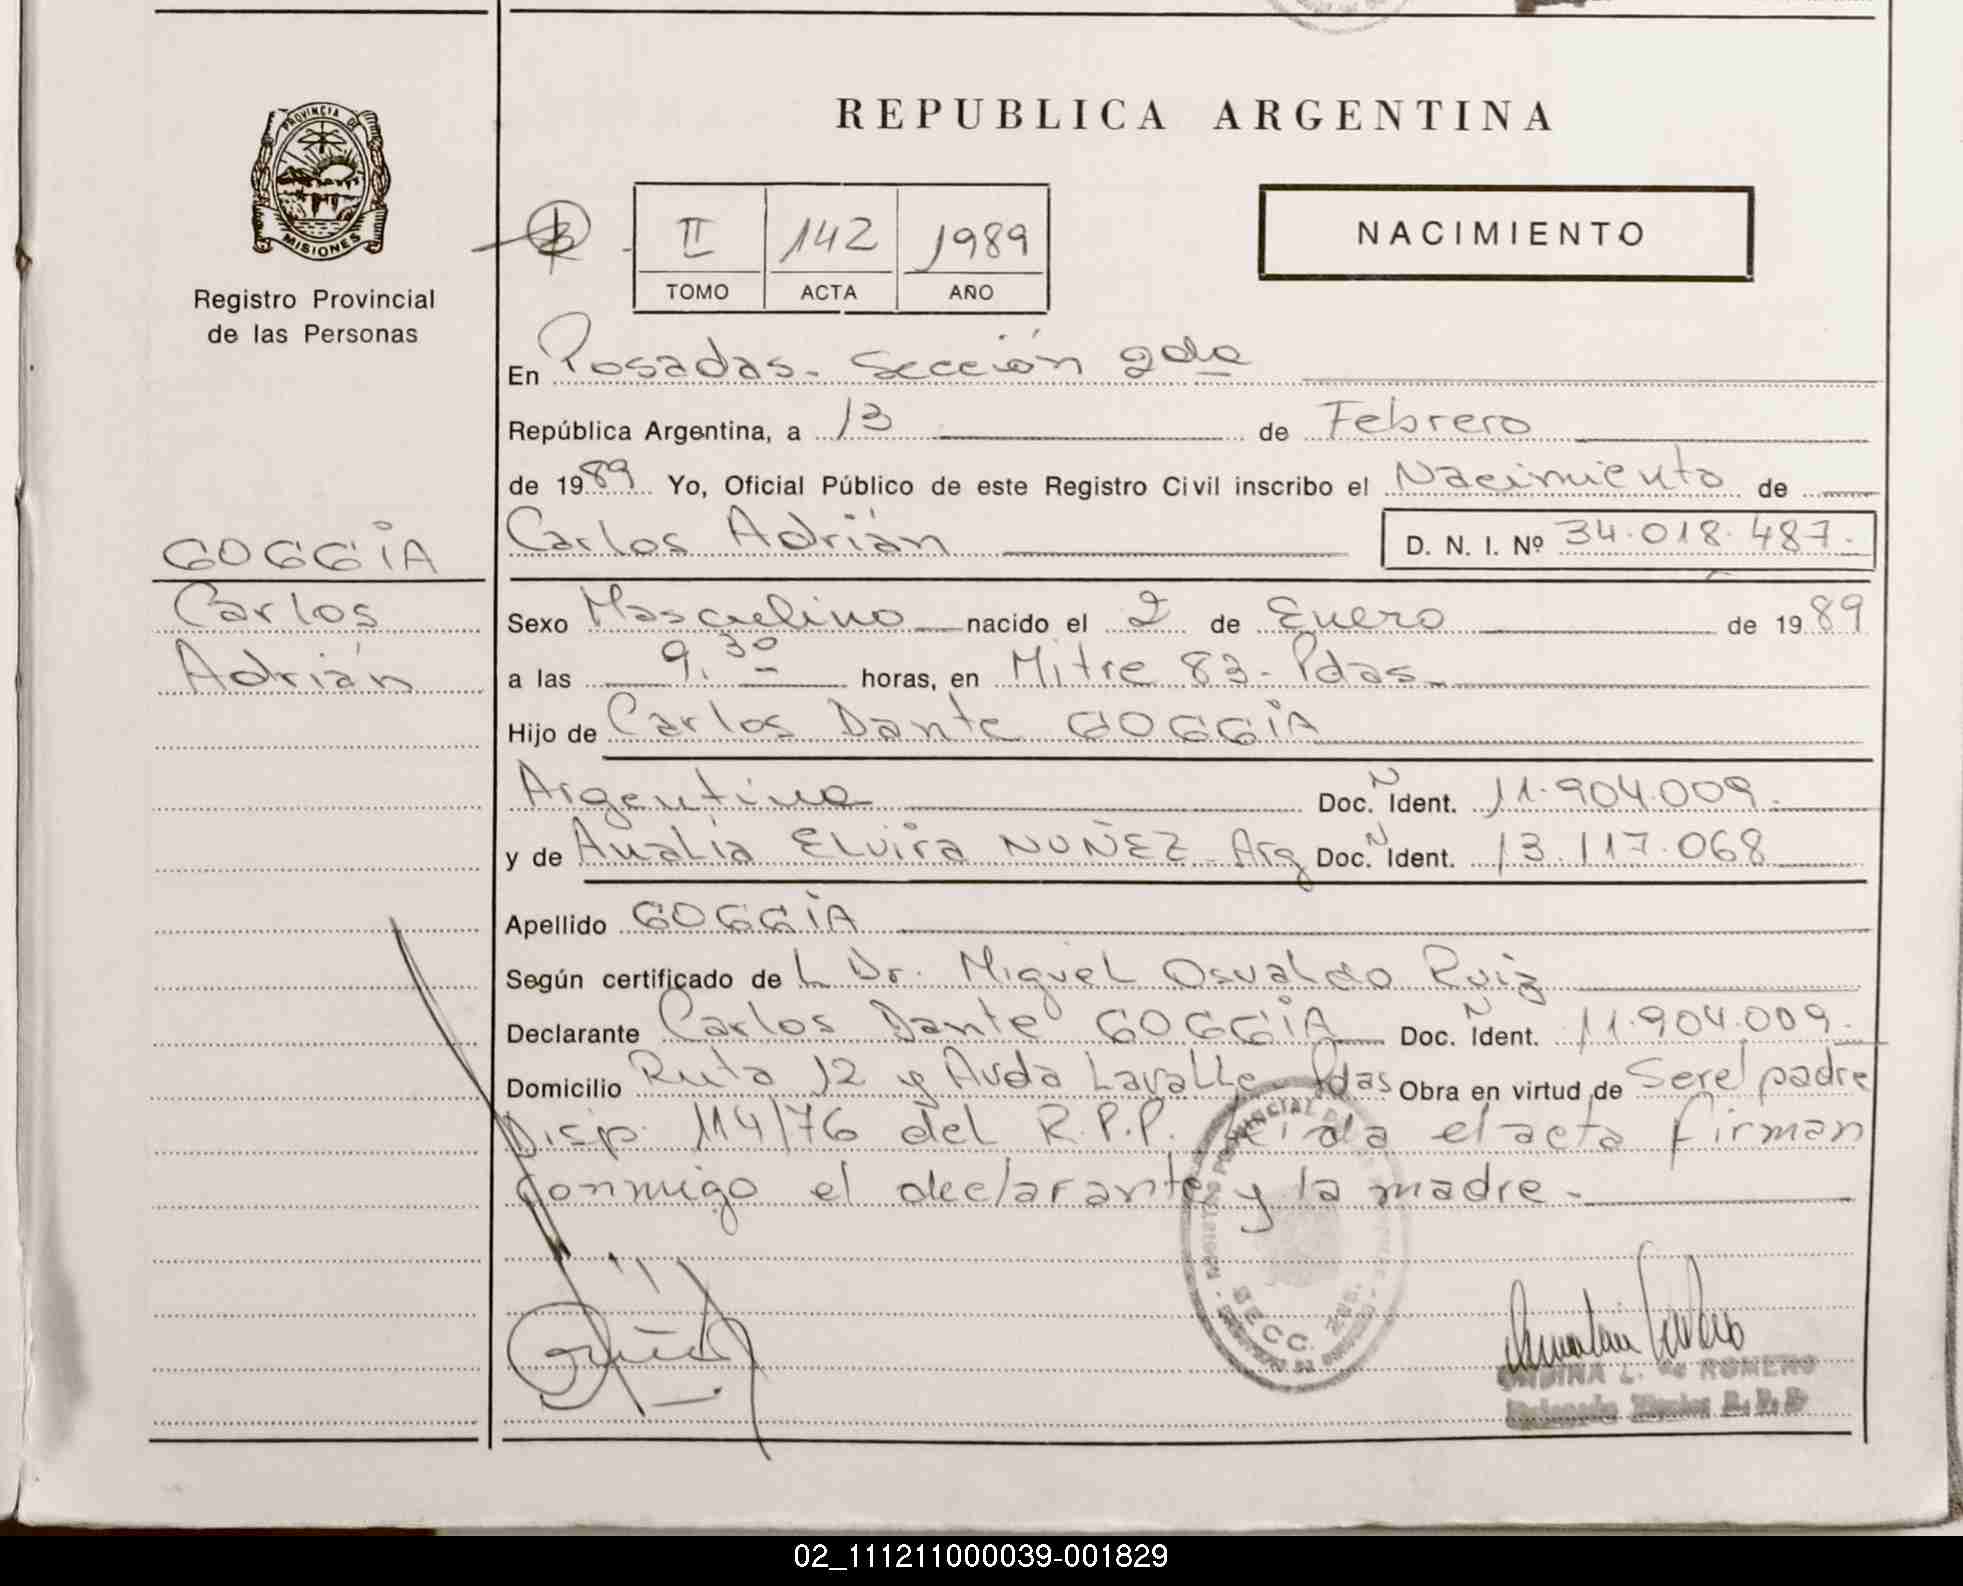 PROVINCIA DE
MISIONES
Registro Provincial
de las Personas
GOGGIA
Carlos
Adrián
REPUBLICA ARGENTINA
II 142 1989
TOMO ACTA AÑO
NACIMIENTO
En Posadas. Sección 2da
República Argentina, a 13 de Febrero
de 1989 Yo, Oficial Público de este Registro Civil inscribo el Nacimiento de
Carlos Adrián D. N. I. Nº 34.018.487.
Sexo Masculino nacido el 2 de Enero de 1989
a las 9.30 horas, en Mitre 83- Pdas.
Hijo de Carlos Dante GOGGIA
Argentino Doc. Ñ Ident. 11.904.009.
y de Analía Elvira NUÑEZ Arg Doc. Ñ Ident. 13.117.068
Apellido GOGGIA
Según certificado de L Dr. Miguel Osvaldo Ruiz
Declarante Carlos Dante GOGGIA Doc. Ñ Ident. 11.904.009.
Domicilio Ruta 12 y Avda Lavalle. Pdas Obra en virtud de Ser el padre
Disp. 114/76 del R.P.P. Leida el acta firman
conmigo el declarante y la madre.
SECC. 2da.
ONDINA L. de ROMERO
02_111211000039-001829